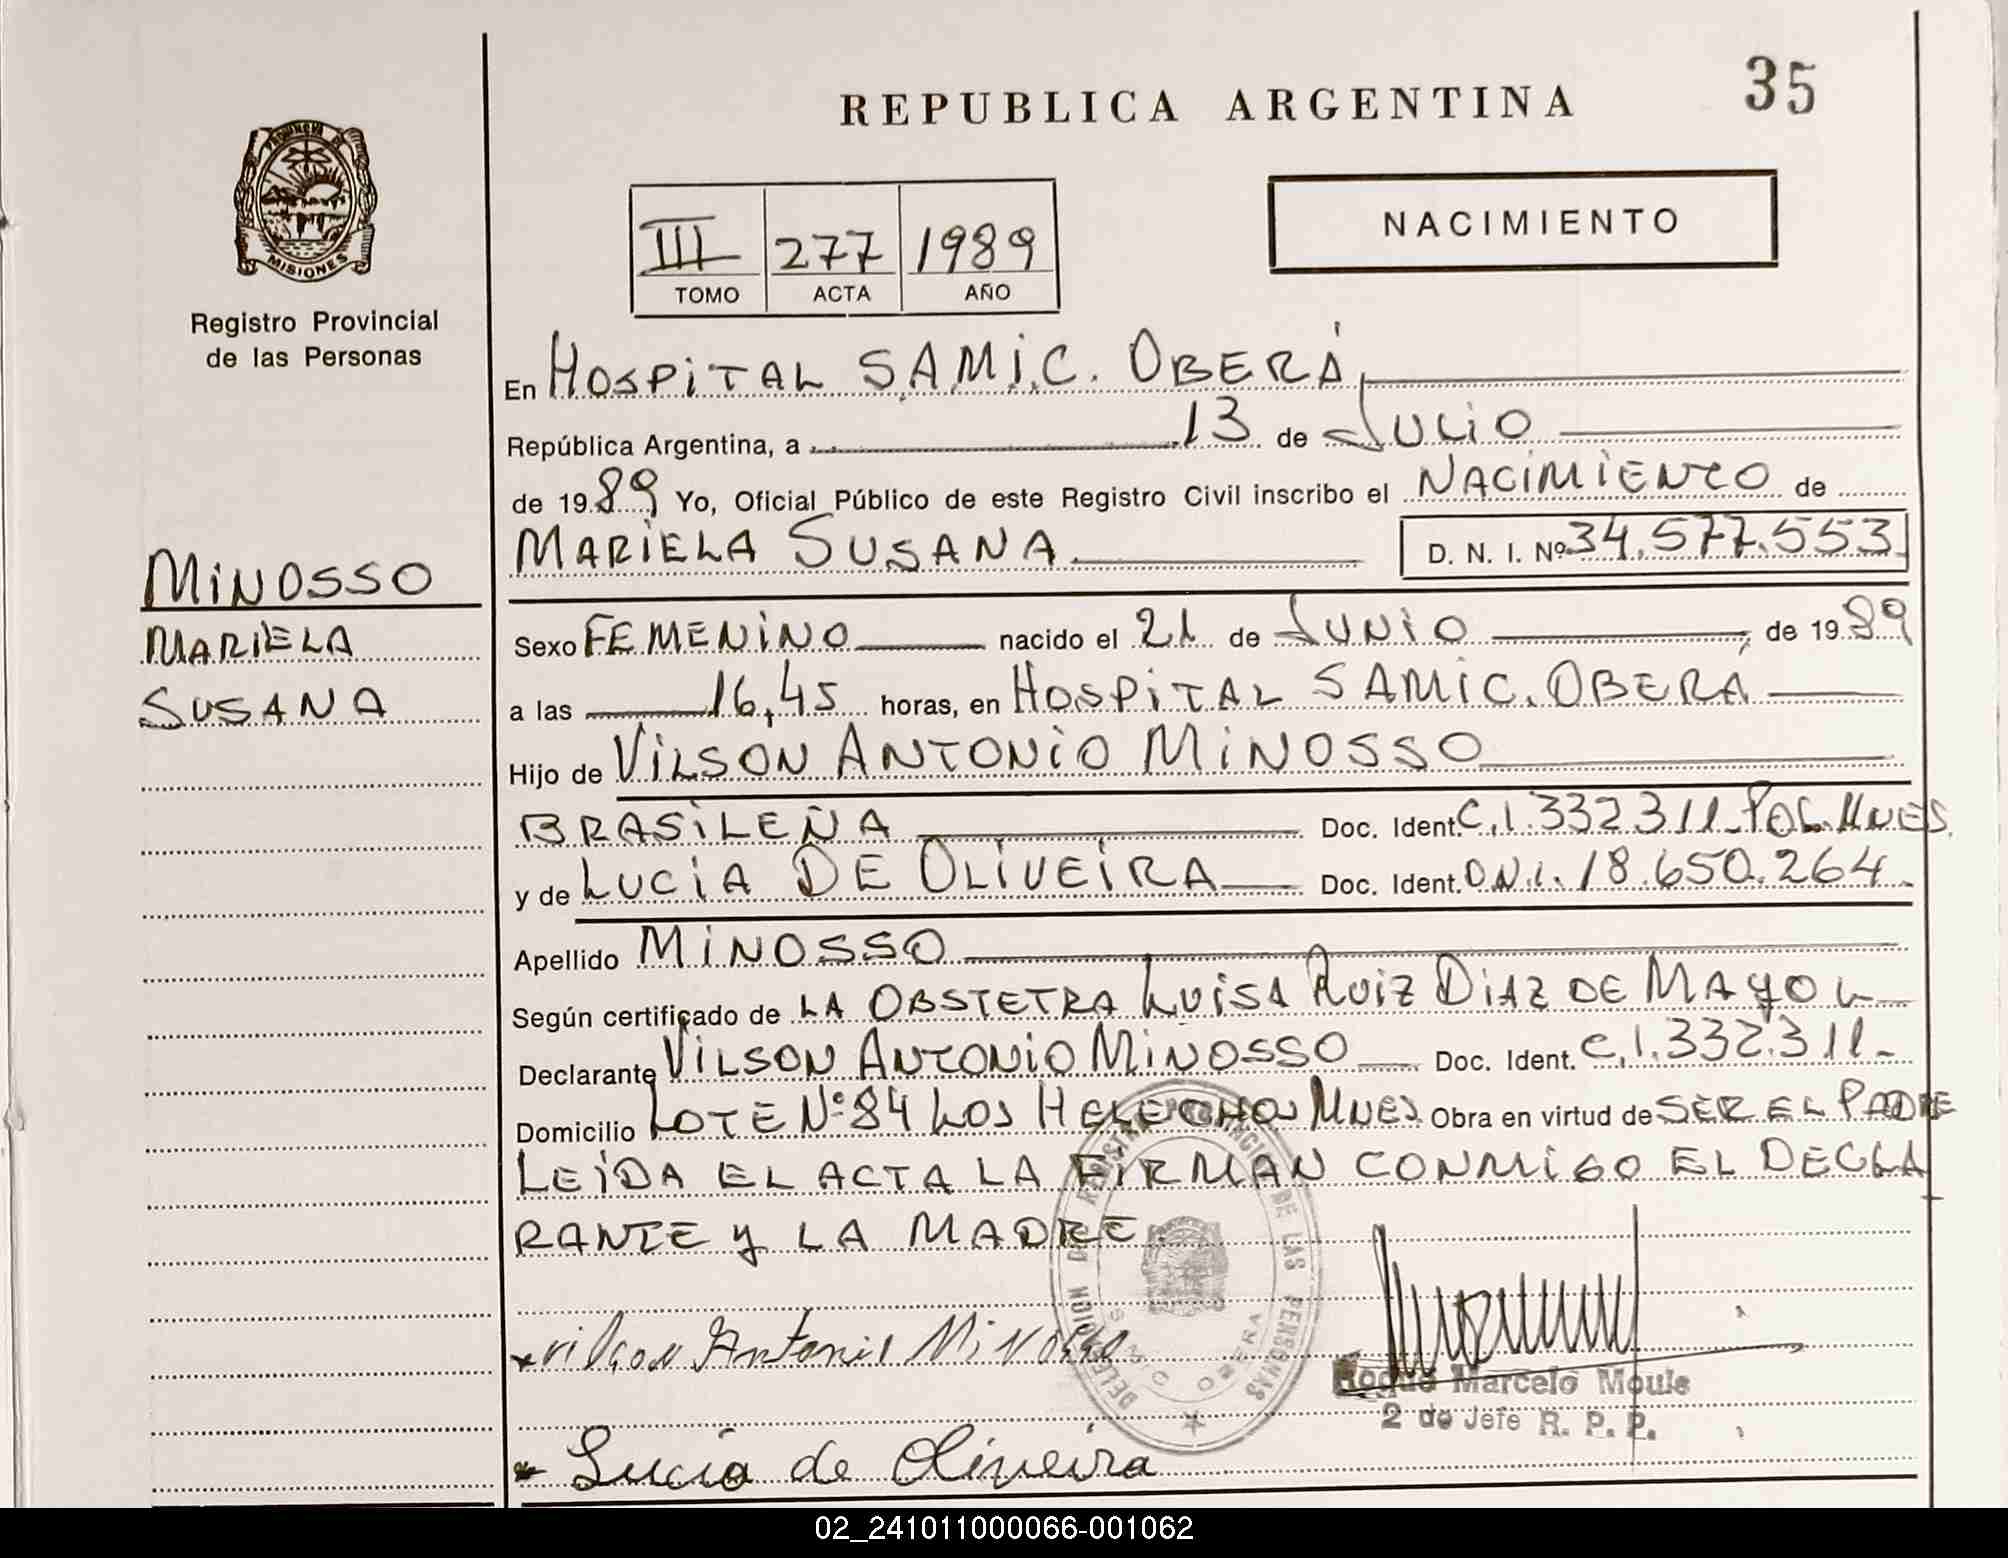 REPUBLICA ARGENTINA
35
PROVINCIA DE
MISIONES
Registro Provincial
de las Personas
III 277 1989
TOMO ACTA AÑO
NACIMIENTO
En HOSPITAL SAMIC. OBERÁ,
República Argentina, a 13 de JULIO
de 1989 Yo, Oficial Público de este Registro Civil inscribo el NACIMIENTO de
MARIELA SUSANA D. N. I. Nº 34.577.553
MINOSSO
MARIELA
SUSANA
Sexo FEMENINO nacido el 21 de JUNIO, de 1989
a las 16,45 horas, en HOSPITAL SAMIC. OBERA
Hijo de VILSON ANTONIO MINOSSO
BRASILEÑA Doc. Ident. C.I. 332311 POL. MNES.
y de LUCIA DE OLIVEIRA Doc. Ident. D.N.I. 18.650.264
Apellido MINOSSO
Según certificado de LA OBSTETRA LUISA RUIZ DIAZ DE MAYOL
Declarante VILSON ANTONIO MINOSSO Doc. Ident. C.I. 332.311
Domicilio LOTE Nº 84 LOS HELECHOS MNES Obra en virtud de SER EL PADRE
LEIDA EL ACTA LA FIRMAN CONMIGO EL DECLA
RANTE Y LA MADRE.
vilson Antonio Minosso
Lucia de Oliveira
REGISTRO PROVINCIAL DE LAS PERSONAS
OBERA
Roque Marcelo Mouls
2 do Jefe R. P. P.
02_241011000066-001062